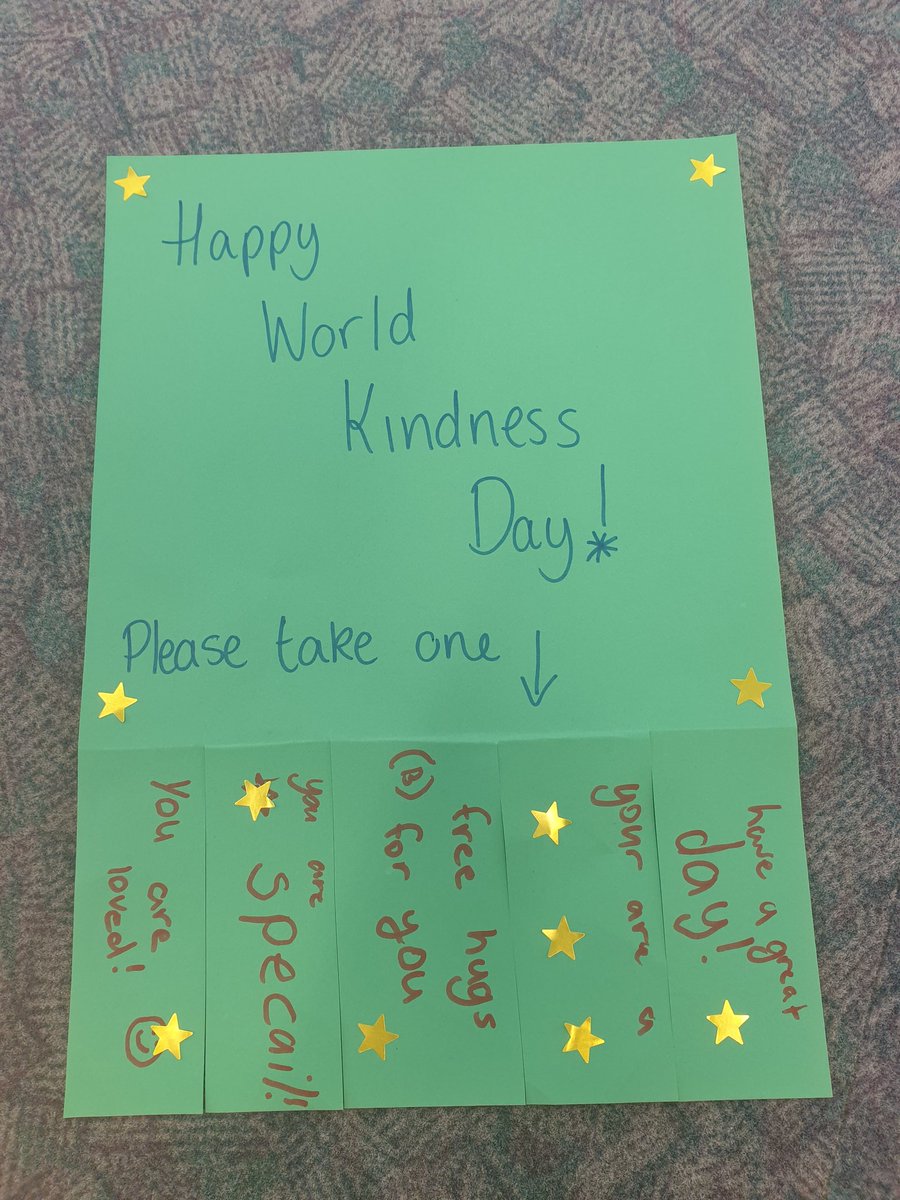 Happy
World
Kindness
Day!
Please take one ↓
You are
loved!
you are
specail!
free hugs
(B) for you
your are a
have a great
day!